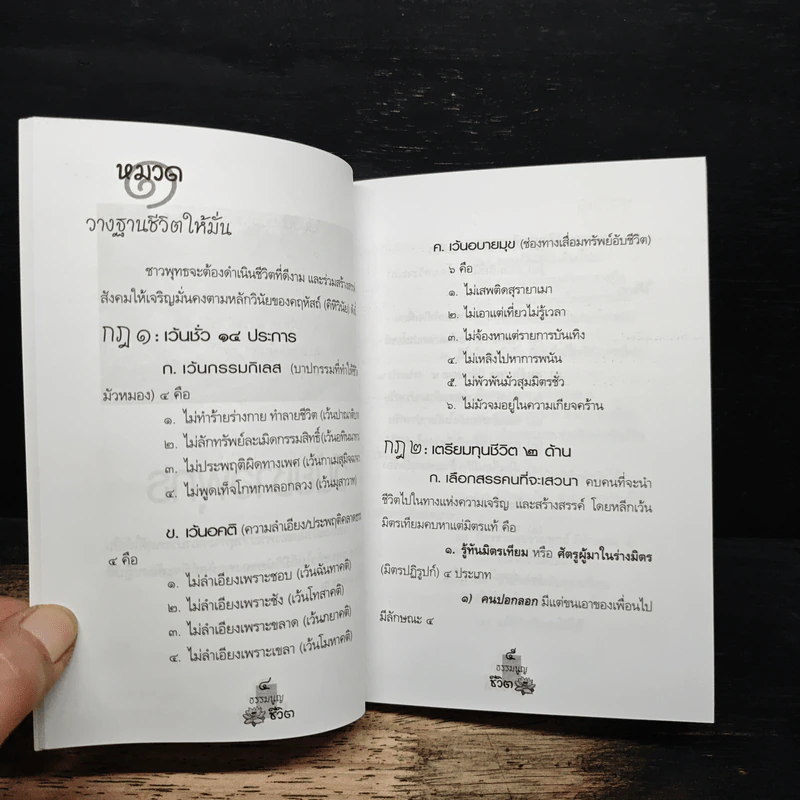 หมวด ๑
วางฐานชีวิตให้มั่น
ชาวพุทธจะต้องดำเนินชีวิตที่ดีงาม และร่วมสร้างสรรค์
สังคมให้เจริญมั่นคงตามหลักวินัยของคฤหัสถ์ (คิหิวินัย)
กฎ ๑ : เว้นชั่ว ๑๔ ประการ
ก. เว้นกรรมกิเลส (บาปกรรมที่ทำให้ชีวิต
มัวหมอง) ๔ คือ
๑. ไม่ทำร้ายร่างกาย ทำลายชีวิต (เว้นปาณาติบาต
๒. ไม่ลักทรัพย์ละเมิดกรรมสิทธิ์ (เว้นอทินนาทาน
๓. ไม่ประพฤติผิดทางเพศ (เว้นกาเมสุมิจฉาจาร
๔. ไม่พูดเท็จโกหกหลอกลวง (เว้นมุสาวาท
ข. เว้นอคติ (ความลำเอียง/ประพฤติคลาดธรรม
๔ คือ
๑. ไม่ลำเอียงเพราะชอบ (เว้นฉันทาคติ)
๒. ไม่ลำเอียงเพราะชัง (เว้นโทสาคติ)
๓. ไม่ลำเอียงเพราะขลาด (เว้นภยาคติ)
๔. ไม่ลำเอียงเพราะเขลา (เว้นโมหาคติ)
๔
ธรรมนูญ
ชีวิต
ค. เว้นอบายมุข (ช่องทางเสื่อมทรัพย์อับชีวิต)
๖ คือ
๑. ไม่เสพติดสุรายาเมา
๒. ไม่เอาแต่เที่ยวไม่รู้เวลา
๓. ไม่จ้องหาแต่รายการบันเทิง
๔. ไม่เหลิงไปหาการพนัน
๕. ไม่พัวพันมั่วสุมมิตรชั่ว
๖. ไม่มัวจมอยู่ในความเกียจคร้าน
กฎ ๒ : เตรียมทุนชีวิต ๒ ด้าน
ก. เลือกสรรคนที่จะเสวนา คบคนที่จะนำ
ชีวิตไปในทางแห่งความเจริญ และสร้างสรรค์ โดยหลีกเว้น
มิตรเทียมคบหาแต่มิตรแท้ คือ
๑. รู้ทันมิตรเทียม หรือ ศัตรูผู้มาในร่างมิตร
(มิตรปฏิรูปก์) ๔ ประเภท
๑) คนปอกลอก มีแต่ขนเอาของเพื่อนไป
มีลักษณะ ๔
๕
ธรรมนูญ
ชีวิต